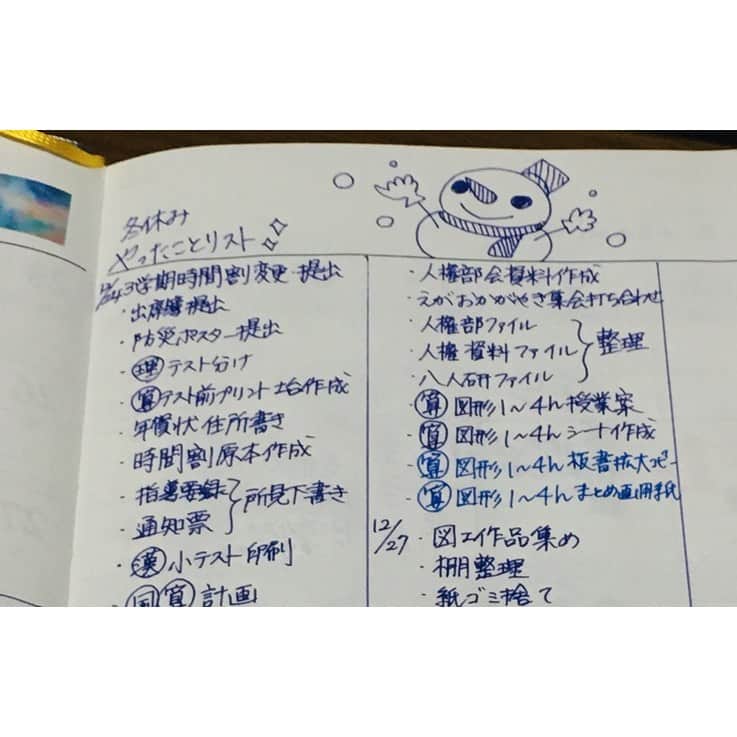 冬休み
やったことリスト
12/24 3学期時間割変更 提出
・出席簿提出
・防災ポスター提出
・理テスト分け
・算テスト前プリント台作成
・年賀状住所書き
・時間割原本作成
・指導要録
・通知票
所見下書き
・漢小テスト印刷
・国算計画
・人権部会資料作成
・えがおかがやき集会打ち合わせ
・人権部ファイル
・人権資料ファイル
・八人研ファイル
整理
・算図形1〜4h授業案
・算図形1〜4hシート作成
・算図形1〜4h板書拡大コピー
・算図形1〜4hまとめ画用紙
12/27・図工作品集め
・棚整理
・紙ゴミ捨て